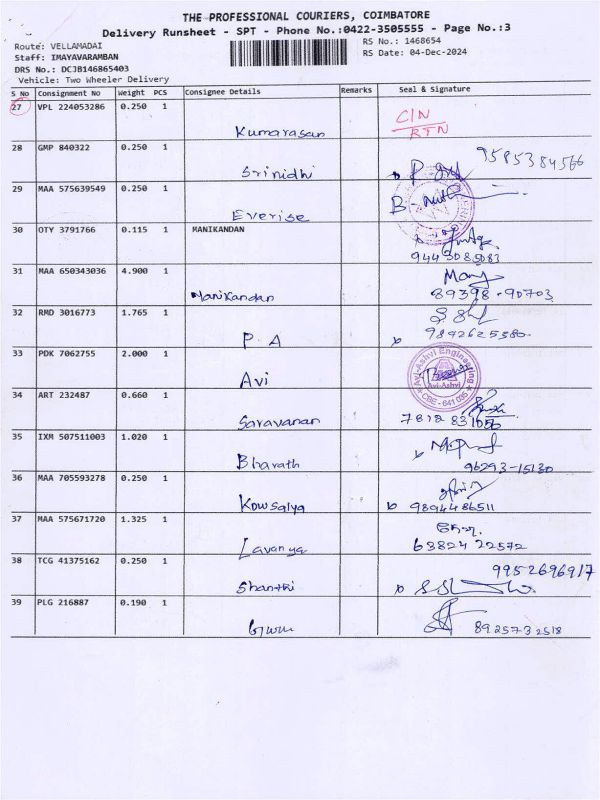 THE PROFESSIONAL COURIERS, COIMBATORE
Delivery Runsheet - SPT - Phone No.:0422-3505555 - Page No.:3
Route: VELLAMADAI
RS No.: 1468654
Staff: IMAYAVARAMBAN
RS Date: 04-Dec-2024
DRS No.: DCJB146865403
Vehicle: Two Wheeler Delivery
S No Consignment No Weight PCS Consignee Details Remarks Seal & Signature
27 VPL 224053286 0.250 1
Kumarasan
CIN
RTN
28 GMP 840322 0.250 1
Srinidhi
9585384566
29 MAA 575639549 0.250 1
Everise
30 OTY 3791766 0.115 1 MANIKANDAN
9443085083
31 MAA 650343036 4.900 1
Manikandan
Many
89398-90703
32 RMD 3016773 1.765 1
P. A
9842625380
33 PDK 7062755 2.000 1
Avi
Avi-Ashvi Engineering
Avi-Ashvi
CBE - 641 035
34 ART 232487 0.660 1
Saravanan
35 IXM 507511003 1.020 1
Bharath
96293-15130
36 MAA 705593278 0.250 1
Kowsalya
9894486511
37 MAA 575671720 1.325 1
Lavanya
63824 22572
38 TCG 41375162 0.250 1
Shanthi
9952696917
39 PLG 216887 0.190 1
8925732518